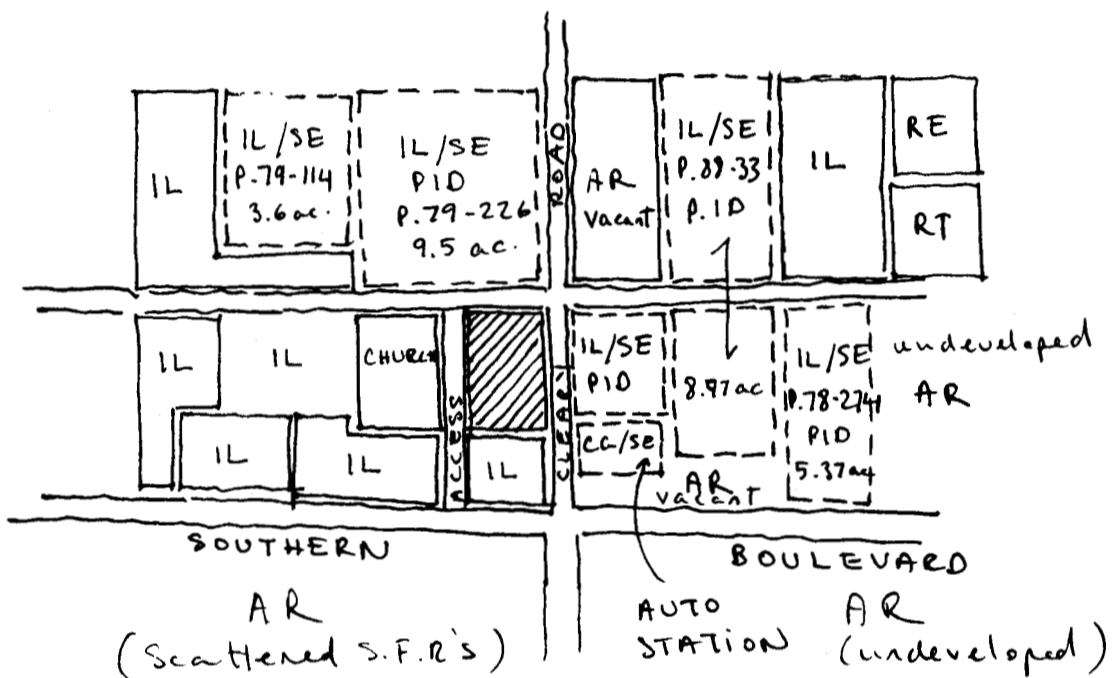 IL
IL/SE
P.79-114
3.6 ac.
IL/SE
PID
P.79-226
9.5 ac.
ROAD
AR
vacant
IL/SE
P.ID
IL
RE
RT
IL
IL
CHURCH
ACCESS
CLEARY
IL/SE
PID
8.97 ac
IL/SE
P.78-274
PID
5.37 ac
undeveloped
AR
IL
IL
IL
CG/SE
AR
vacant
SOUTHERN
BOULEVARD
AR
(Scattered S.F.R's)
AUTO
STATION
AR
(undeveloped)